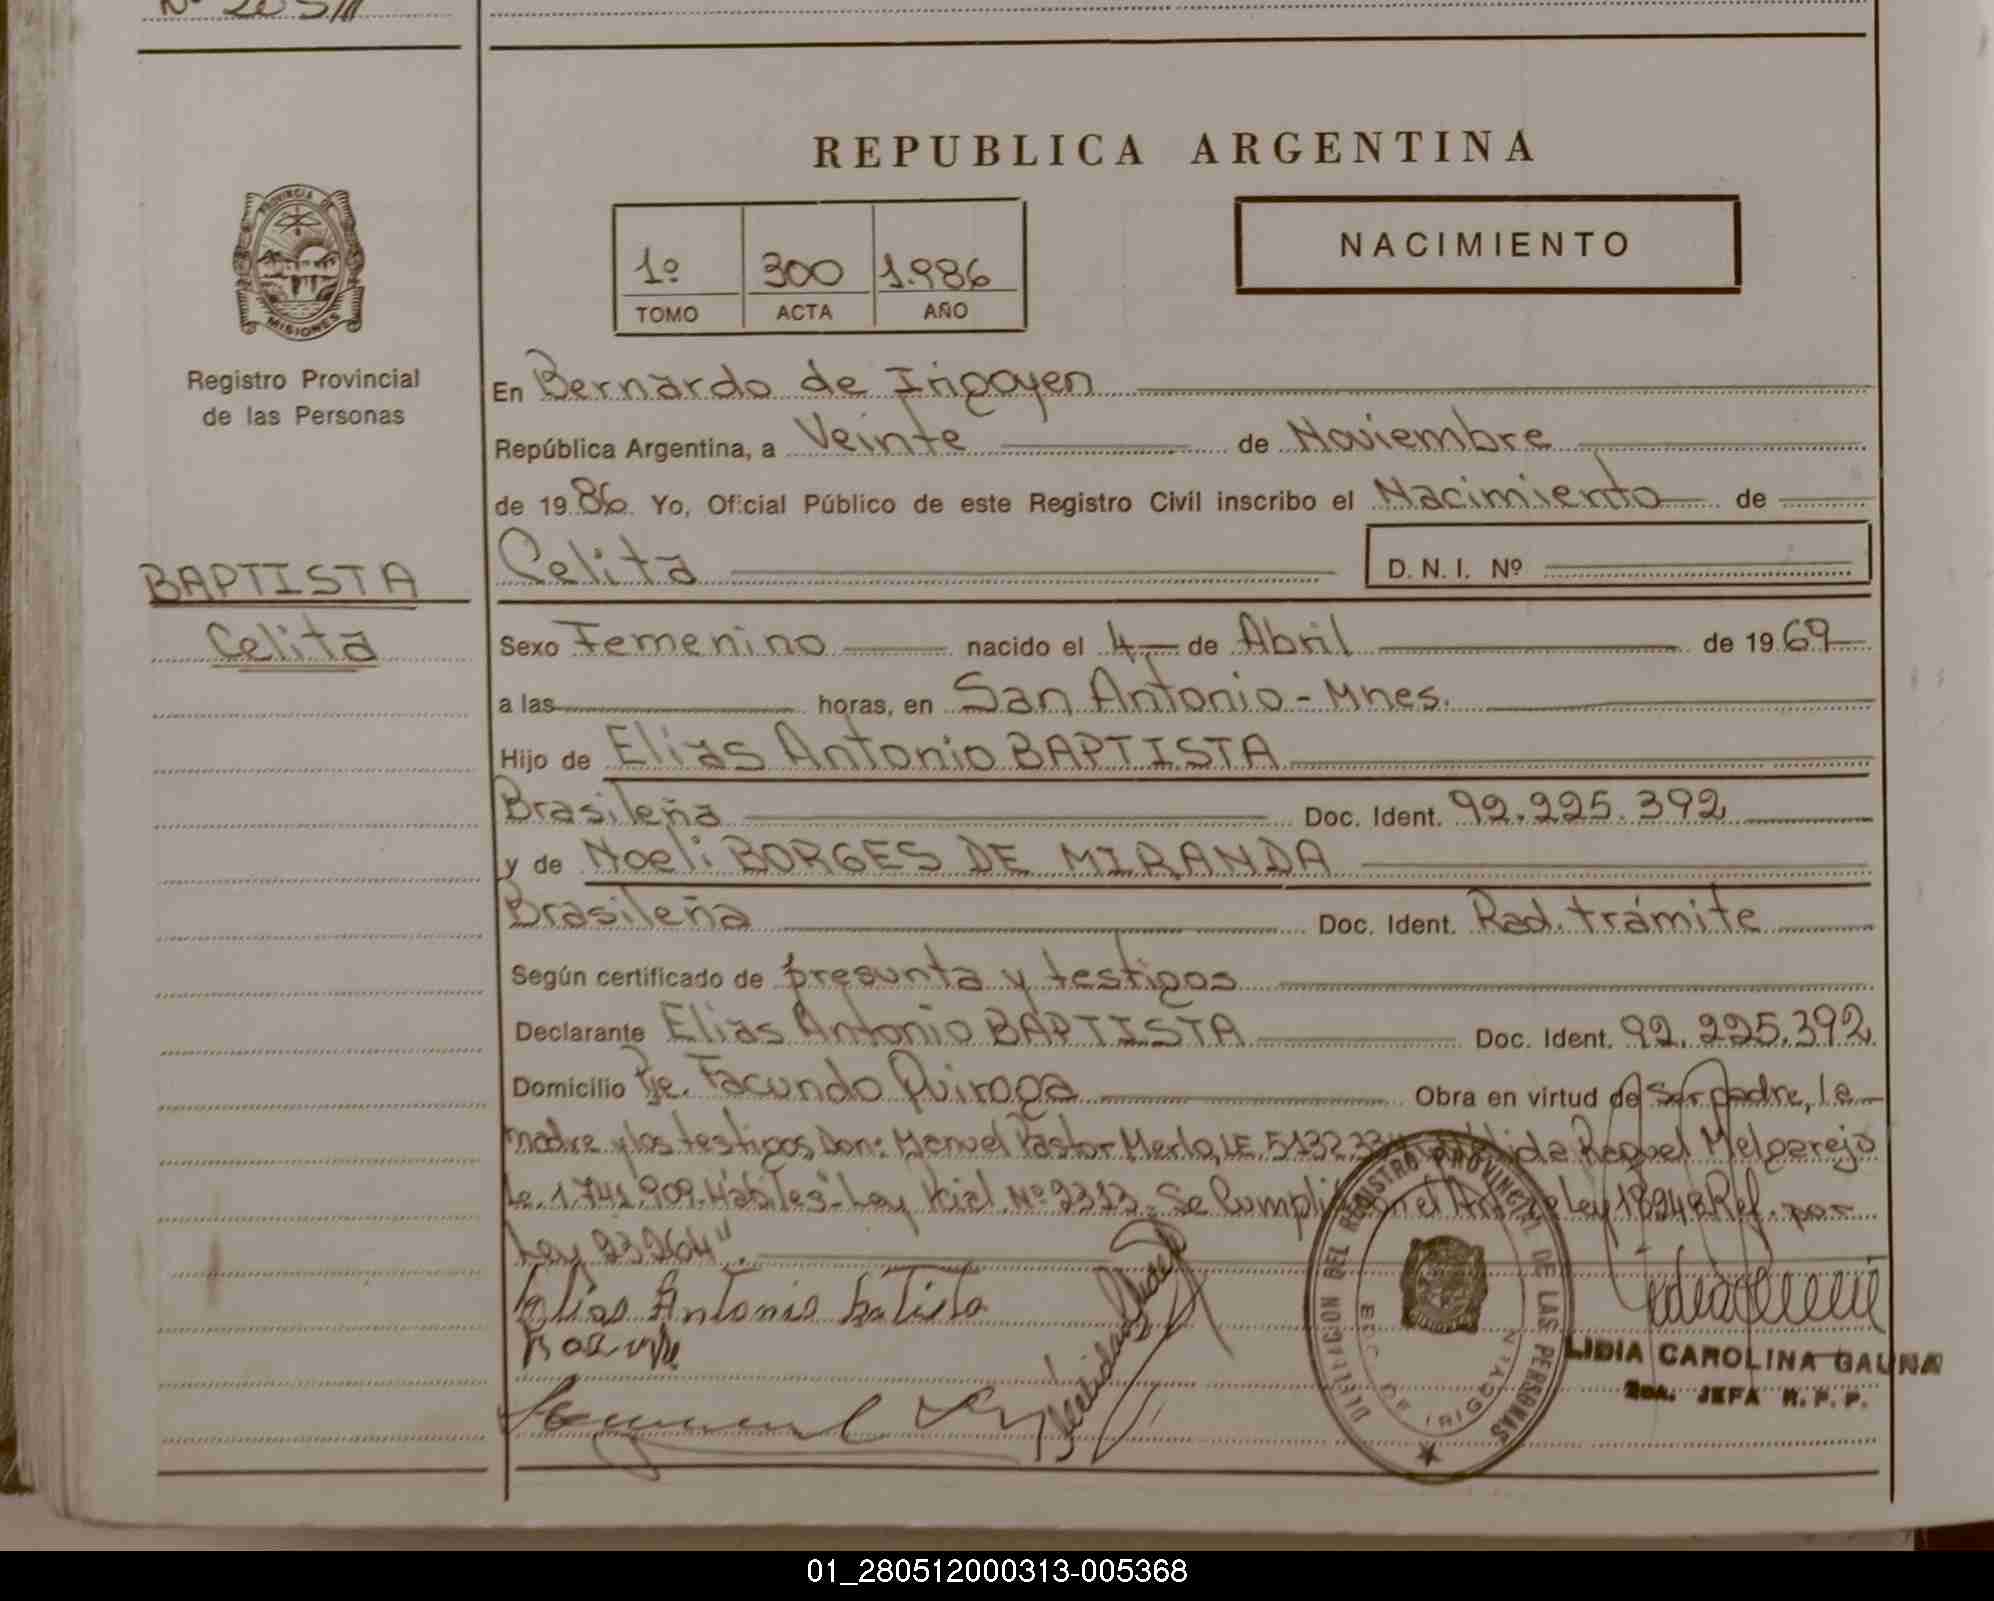 REPUBLICA ARGENTINA
PROVINCIA DE
MISIONES
Registro Provincial
de las Personas
1º 300 1.986
TOMO ACTA AÑO
NACIMIENTO
En Bernardo de Irigoyen
República Argentina, a Veinte de Noviembre
de 1986. Yo, Oficial Público de este Registro Civil inscribo el Nacimiento de
BAPTISTA
Celita
Celita D.N.I. Nº
Sexo Femenino nacido el 4 de Abril de 1969
a las horas, en San Antonio - Mnes.
Hijo de Elias Antonio BAPTISTA
Brasileña Doc. Ident. 92.225.392
y de Noeli BORGES DE MIRANDA
Brasileña Doc. Ident. Rad. trámite
Según certificado de presunta y testigos
Declarante Elias Antonio BAPTISTA Doc. Ident. 92.225.392
Domicilio Pje. Facundo Quiroga Obra en virtud de ser padre, la
madre y los testigos Don: Manuel Pastor Merlo, LE. Raquel Melgarejo
Le. 1.741.909. Hábiles" Ley Pcial. Nº 2313. Se Cumplió con el Ley 18248 Ref. por
Ley 23264".
Elias Antonio Batista
DELEGACION DEL REGISTRO PROVINCIAL DE LAS PERSONAS
BDO. DE IRIGOYEN
LIDIA CAROLINA GAUNA
2DA. JEFA R.P.P.
01_280512000313-005368